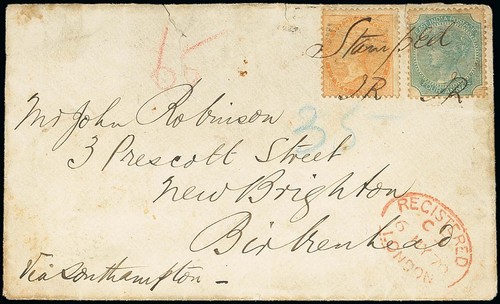 Stamped
JR JR
65
35
Mr John Robinson
3 Prescott Street
New Brighton
Birkenhead
Via Southampton
REGISTERED
C
LONDON